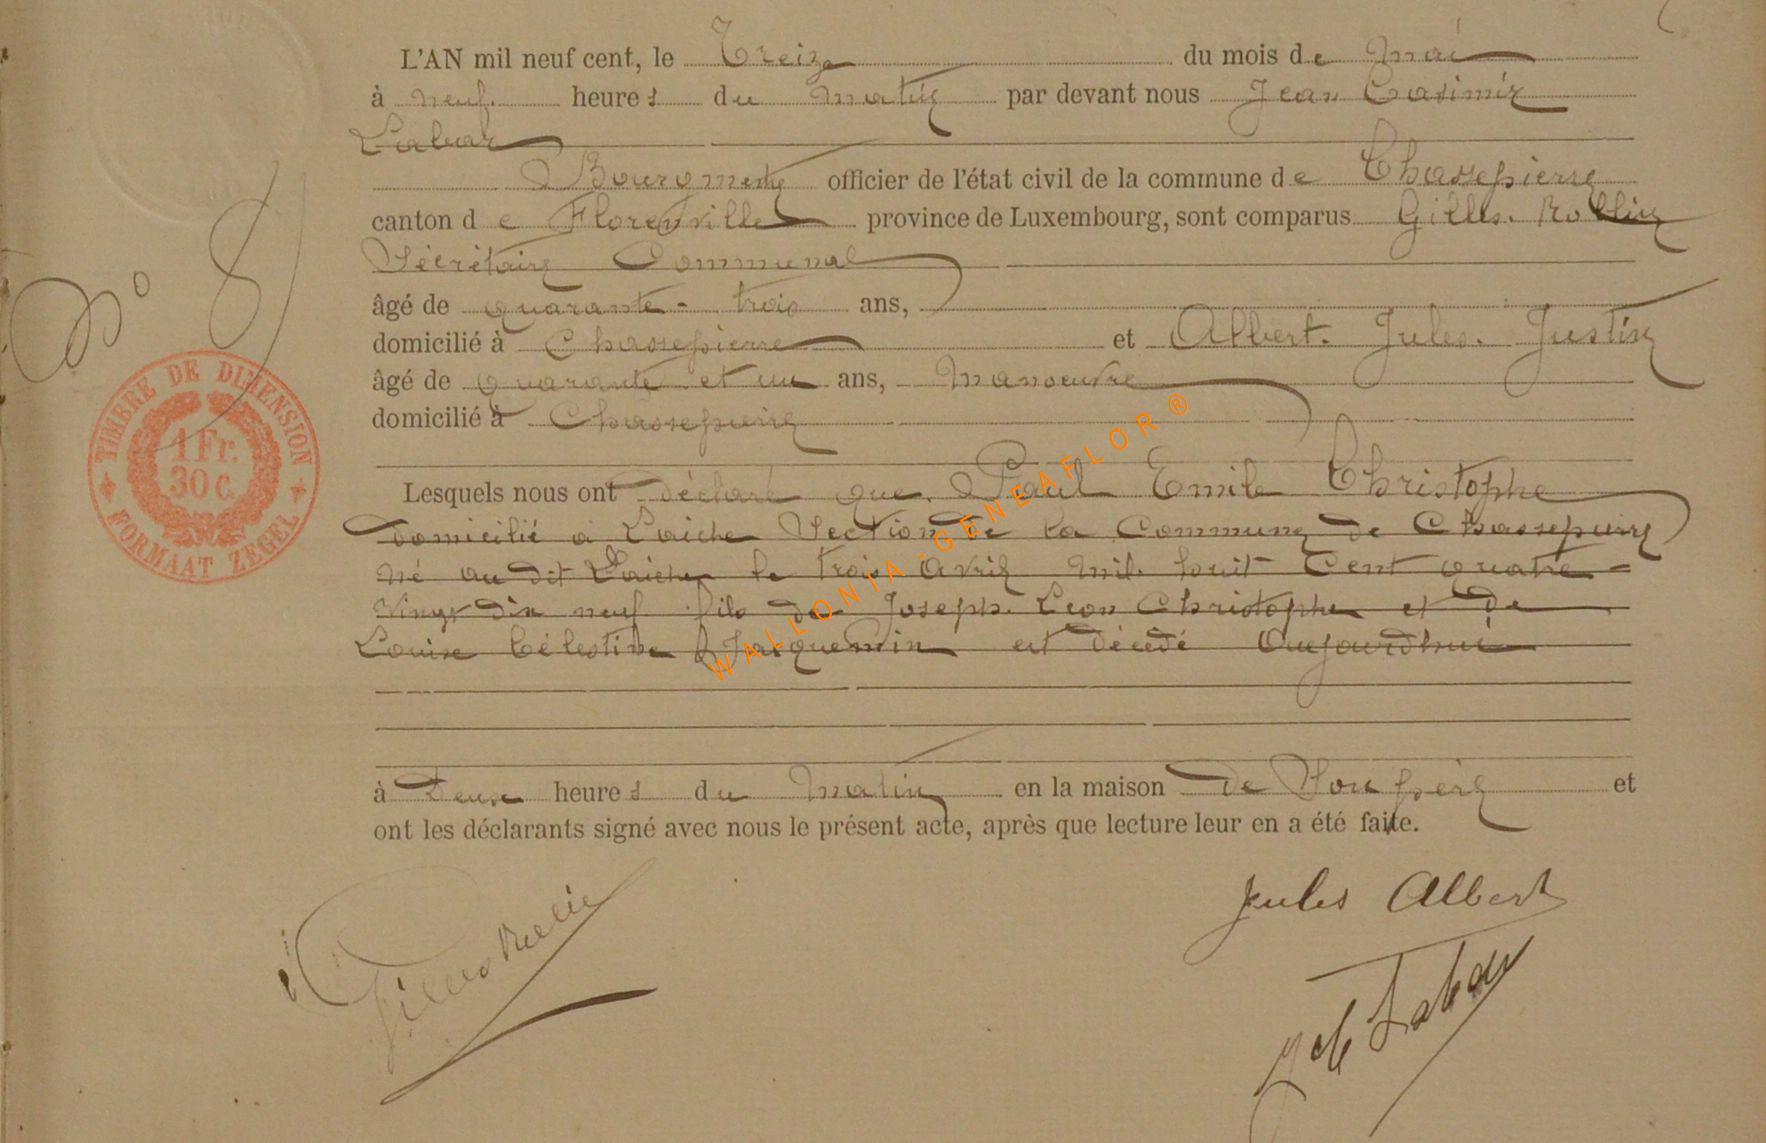 L'AN mil neuf cent, le Treize du mois de Mai
à neuf. heures du matin par devant nous Jean Casimir
Labar
Bourgmestre officier de l'état civil de la commune de Chassepierre
canton de Florenville province de Luxembourg, sont comparus Gilles. Rollin
Sécrétaire Communal
âgé de quarante - trois ans,
domicilié à Chassepierre et Albert. Jules. Justin
âgé de quarante et un ans, Manoeuvre
domicilié à Chassepierre
Lesquels nous ont déclaré que. Paul Emile Christophe
domicilié à Laiche Section de la Commune de Chassepierre
né au dit Laiche le trois Avril mil huit Cent quatre -
vingt dix neuf fils de Joseph. Leon Christophe et de
Louise Célestine Jacquemin est décédé Aujourd'hui
à Deux heures du Matin en la maison de Son père et
ont les déclarants signé avec nous le présent acte, après que lecture leur en a été faite.
N° 8
TIMBRE DE DIMENSION
1 Fr.
30 C.
FORMAAT ZEGEL
WALLONIA GENEAFLOR ®
Jules Albert
Gilles Rollin
J C Labar